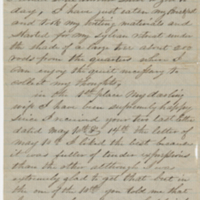 day, I have just taken my basket
and all my writing materials and
started for my sylvan retreat under
the shade of a large tree about 200
rods from the quarters where I
can enjoy the quiet necessary to
my thoughts.
in the 1st place My darling
wife I have been supremely happy
since I received your two last letters
dated May 10th & 14th the letter of
May 10th I liked the best because
it was fuller of tender expressions
than the other although I was
extremely glad to get that but in
the one of the 10th you told me that